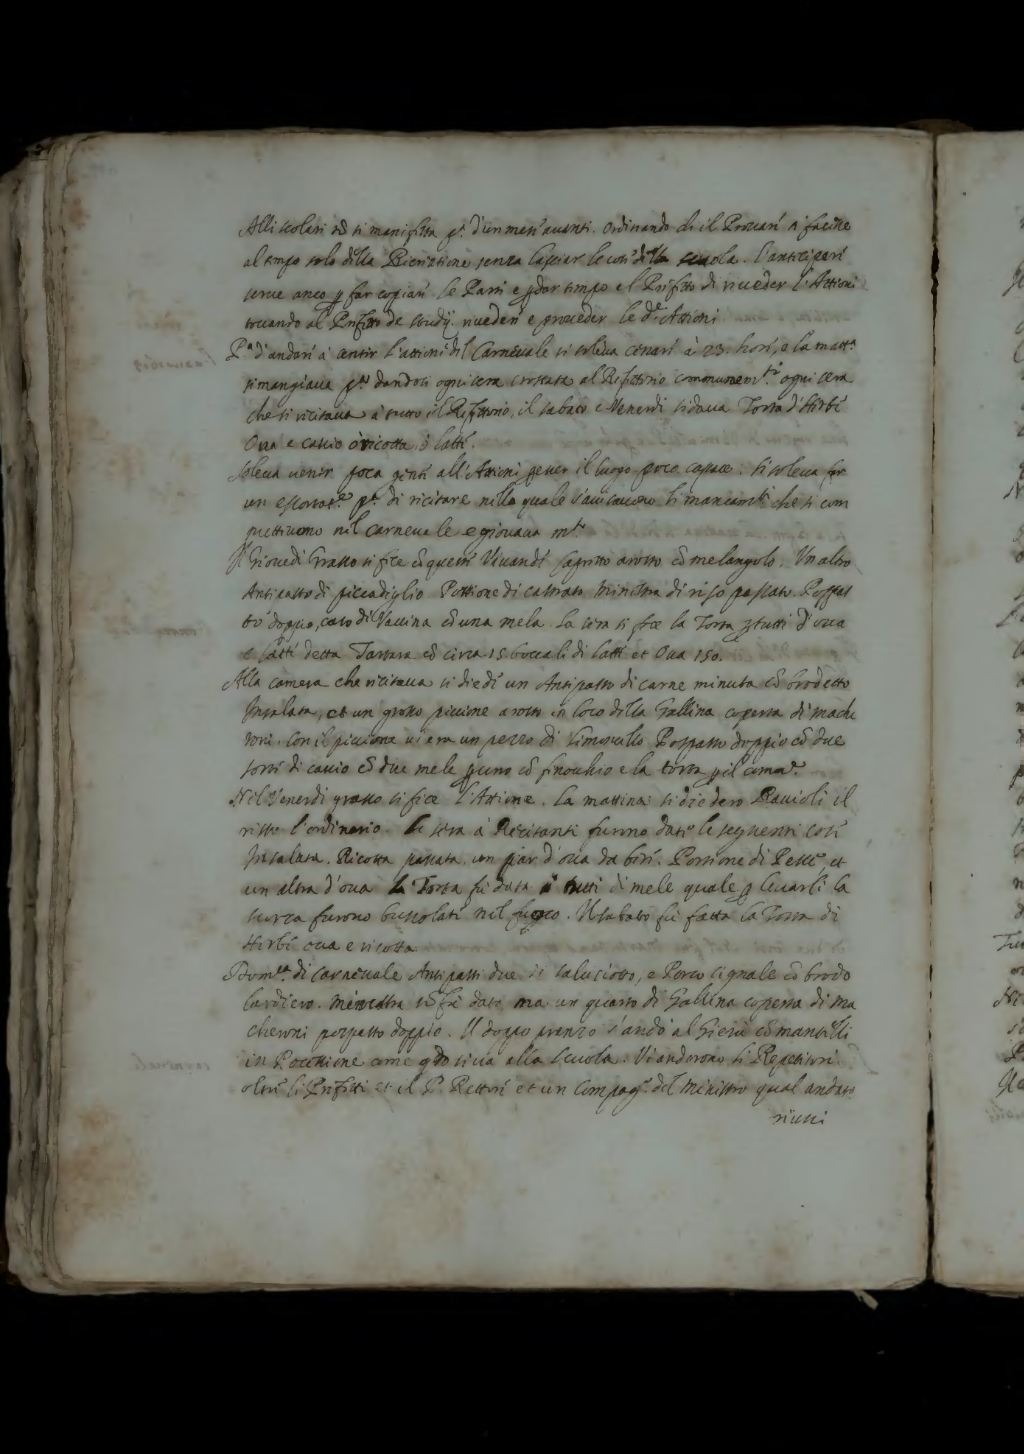 Alli scolari nō si manifesta pª. d'un mese avanti. Ordinando che il Provare si faccia
al tempo solo della Ricreatione senza lasciar le cose della scuola. L'anticipare
serve anco p far copiare le Parti e p dar tempo e l Prefetto di riveder l'Attioni
toccando al Prefetto de studij rivedere e proveder le dᵉ Attioni
Pª d'andare à sentir l'attioni del Carnevale si soleva cenare à 23. hore, e la mattª
si mangiava pª. dandosi ogni sera crostata al Refettorio communemᵗᵉ. ogni sera
che si recitava à tutto il Refettorio, il sabato e Venerdi si dava Torta d'Herbe
Ova e cascio ò ricotta, ò latte.
Soleva venir poca gente all'Attioni p esser il luogo poco capace. Si soleva far
un essortatᵉ pª. di recitare nella quale s'avisavano li mancamti che si com
mettevano nel Carnevale e giovava mᵗᵒ.
Il Giovedi Grasso si fece cō queste Vivande Capretto arosto cō melangolo. Un altro
Antipasto di piccadiglio Pottione di castrato Minestra di riso passato. Pospas
to doppio, caso di Vaccina cō una mela. La sera si fece la Torta p tutti d'ova
e latte detta Tartara cō circa 15 boccali di latte et Ova 150.
Alla camera che recitava si diede un Antipasto di carne minuta cō brodetto
Insalata, et un grosso piccione arosto in loco della Gallina coperta di mache
roni. Con il piccione vi era un pezzo di Pospasto doppio cō due
sorti di cascio cō due mele p uno cō finocchio e la torta p il camᵉ.
Nel Venerdi grasso si fece l'Attione. La mattina si diedero Ravioli il
resto l'ordinario. La sera à Recitanti furono date le seguenti cose
Insalata. Ricotta passata, un par d'ova da bere. Portione di Pesce, et
un altra d'ova La Torta fù data à tutti di mele quale p levarli la
scorza furono bussolate nel fuoco. Il sabato fù fatta la Torta di
Herbe ova e ricotta
Domᶜᵃ. di carnevale Antipasti due di salsciotto, e Porco cignale cō brodo
lardiero. minestra nō fù data, ma un quarto di Gallina coperta di ma
cheroni pospasto doppio. Il doppo pranzo s'andò al Giesù cō mantelli
in Processione come qdo si và alla scuola. Vi andorono li Repetitori
oltre li Prefetti et il P. Rettore et un Compagᵒ. del Ministro qual andato